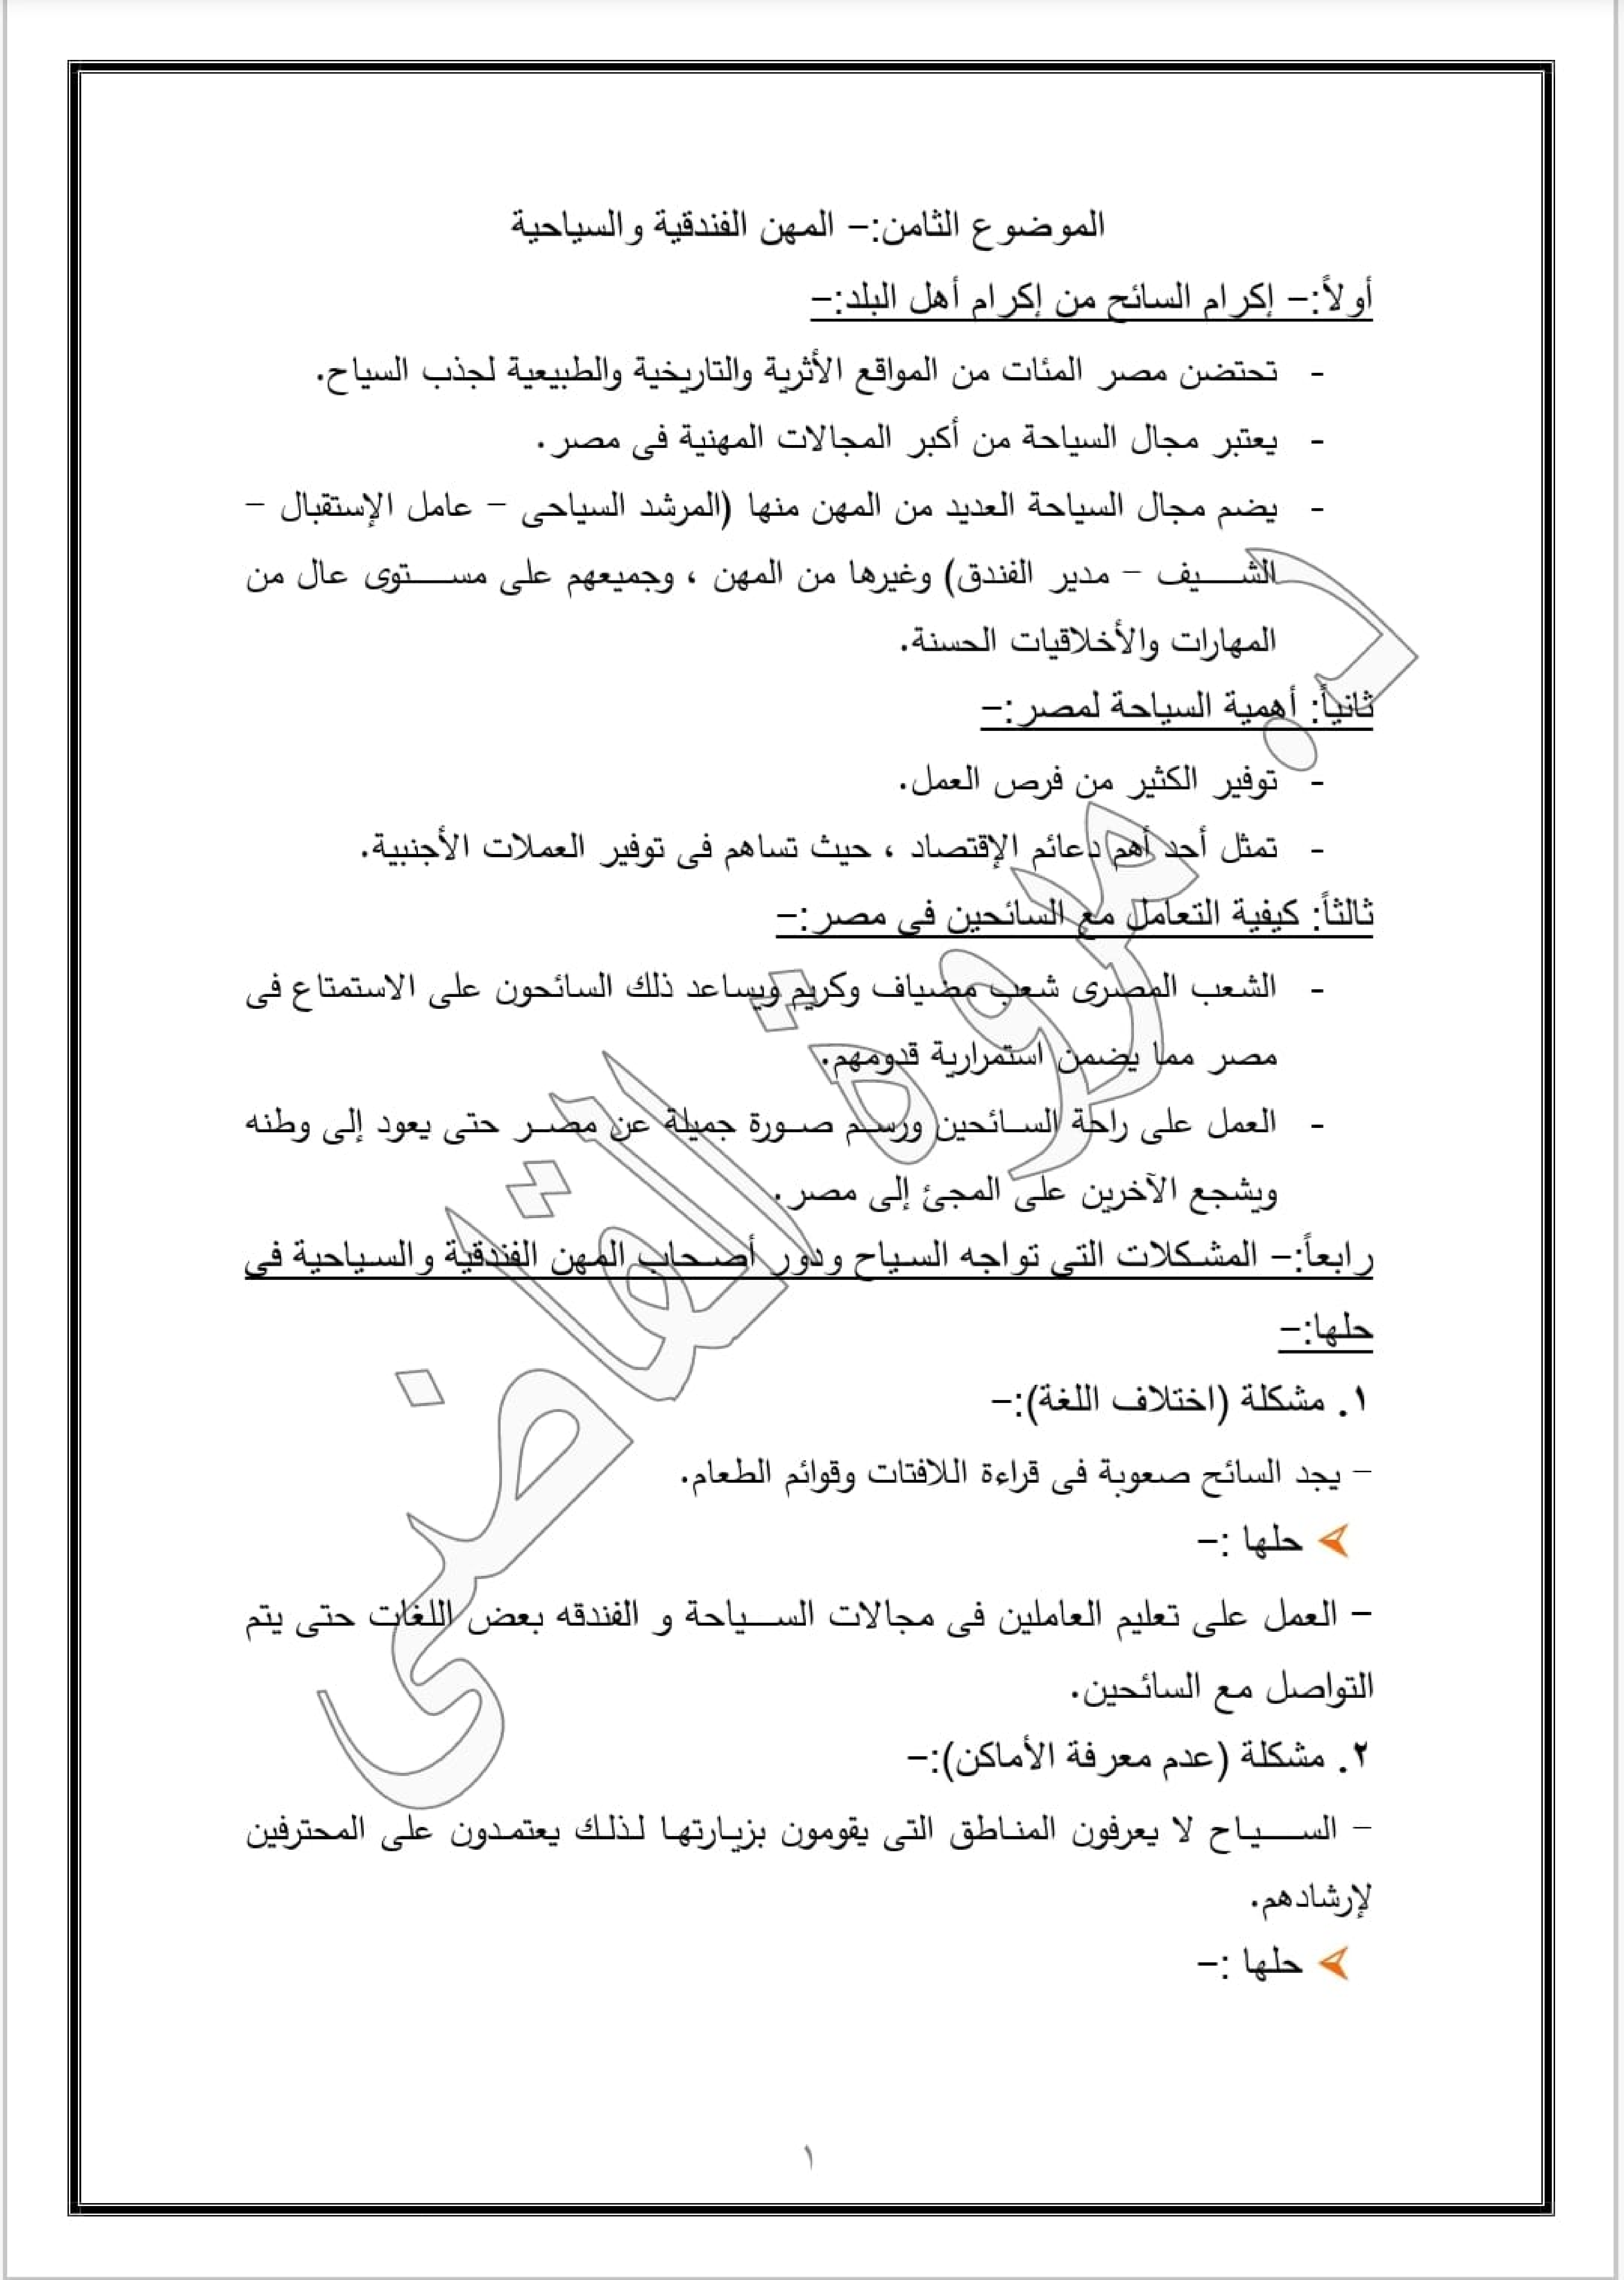 الموضوع الثامن:– المهن الفندقية والسياحية
أولاً:– إكرام السائح من إكرام أهل البلد:–
- تحتضن مصر المئات من المواقع الأثرية والتاريخية والطبيعية لجذب السياح.
- يعتبر مجال السياحة من أكبر المجالات المهنية فى مصر.
- يضم مجال السياحة العديد من المهن منها (المرشد السياحى – عامل الإستقبال –
الشيف – مدير الفندق) وغيرها من المهن ، وجميعهم على مستوى عال من
المهارات والأخلاقيات الحسنة.
ثانياً: أهمية السياحة لمصر:–
- توفير الكثير من فرص العمل.
- تمثل أحد أهم دعائم الإقتصاد ، حيث تساهم فى توفير العملات الأجنبية.
ثالثاً: كيفية التعامل مع السائحين فى مصر:–
- الشعب المصرى شعب مضياف وكريم ويساعد ذلك السائحون على الاستمتاع فى
مصر مما يضمن استمرارية قدومهم.
- العمل على راحة السائحين ورسم صورة جميلة عن مصر حتى يعود إلى وطنه
ويشجع الآخرين على المجئ إلى مصر.
رابعاً:– المشكلات التي تواجه السياح ودور أصحاب المهن الفندقية والسياحية في
حلها:–
١. مشكلة (اختلاف اللغة):–
– يجد السائح صعوبة فى قراءة اللافتات وقوائم الطعام.
حلها :–
– العمل على تعليم العاملين فى مجالات السياحة و الفندقه بعض اللغات حتى يتم
التواصل مع السائحين.
٢. مشكلة (عدم معرفة الأماكن):–
– السياح لا يعرفون المناطق التى يقومون بزيارتها لذلك يعتمدون على المحترفين
لإرشادهم.
حلها :–
١
أ. مروة القاضى